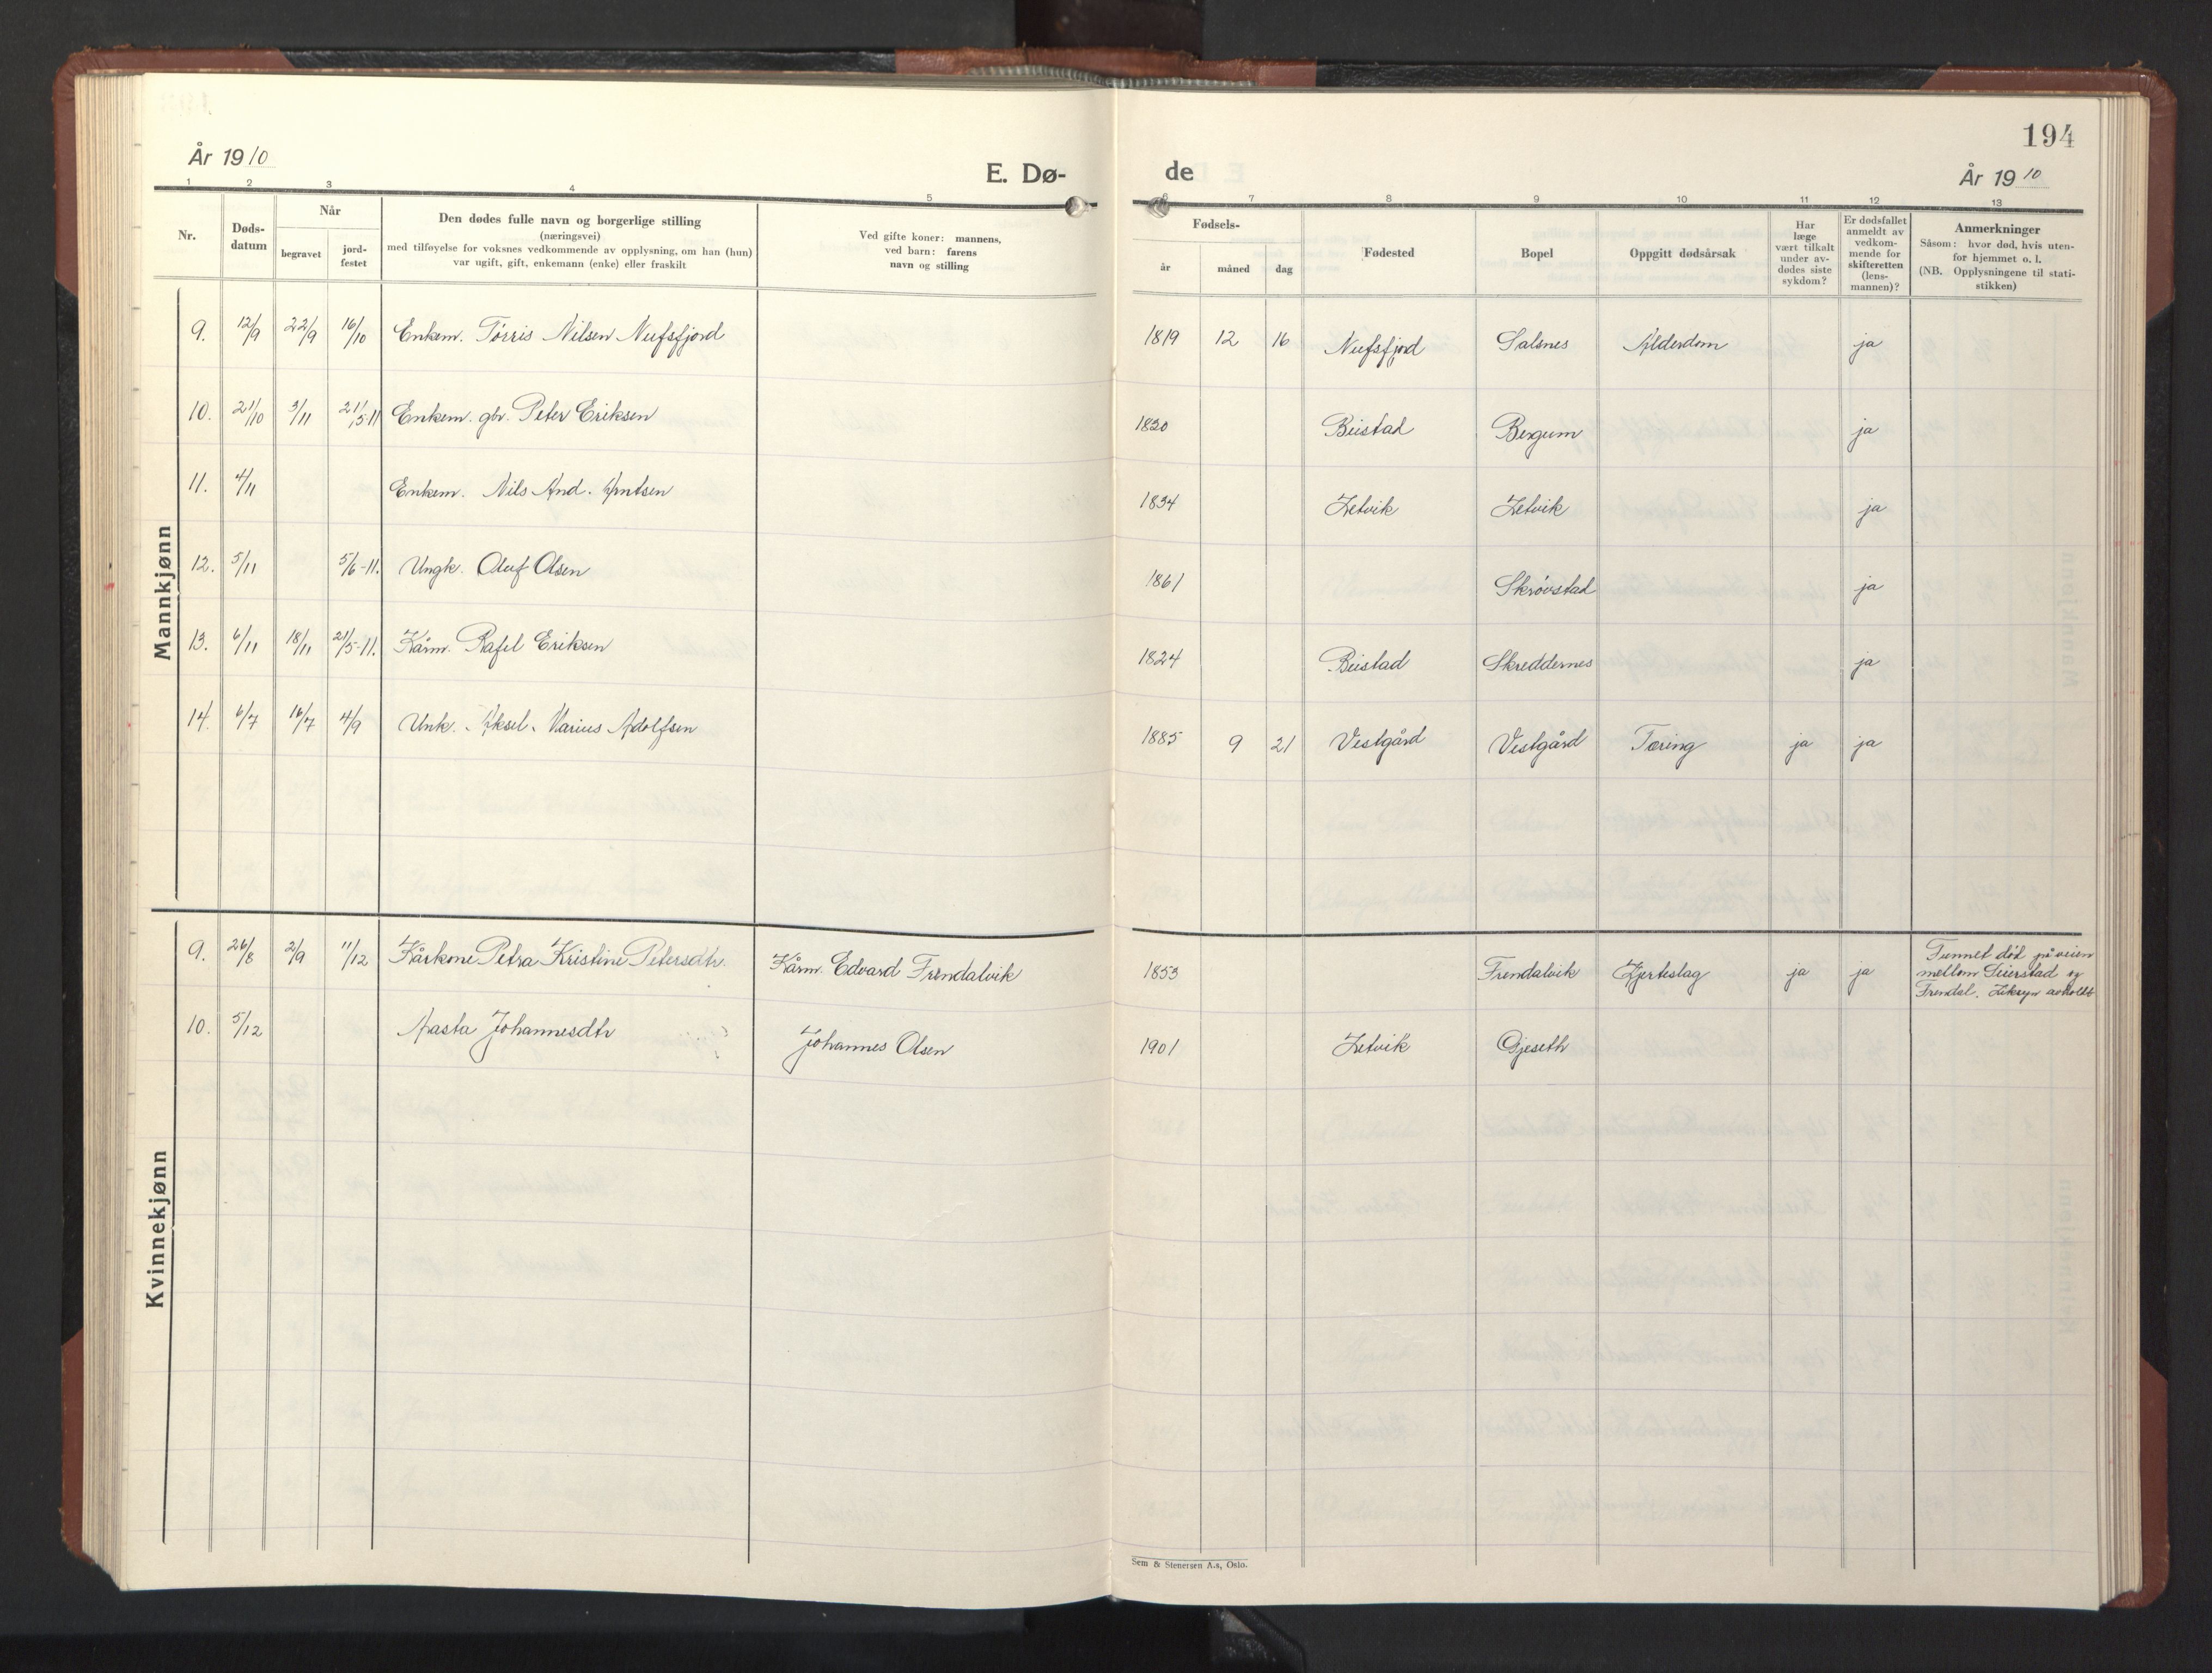 194
År 1910
E. Dø-
de
År 1910
1 2 3 4 5 6 7 8 9 10 11 12 13
Nr.
Døds-
datum
Når
begravet
jord-
festet
Den dødes fulle navn og borgerlige stilling
(næringsvei)
med tilføyelse for voksnes vedkommende av opplysning, om han (hun)
var ugift, gift, enkemann (enke) eller fraskilt
Ved gifte koner: mannens,
ved barn: farens
navn og stilling
Fødsels-
år måned dag
Fødested
Bopel
Oppgitt dødsårsak
Har
læge
vært tilkalt
under av-
dødes siste
sykdom?
Er dødsfallet
anmeldt av
vedkom-
mende for
skifteretten
(lens-
mannen)?
Anmerkninger
Såsom: hvor død, hvis uten-
for hjemmet o. l.
(NB. Opplysningene til stati-
stikken)
Mannkjønn
9. 12/9 22/9 16/10 Enkem. Tørris Nilsen Nufsfjord 1819 12 16 Nufsfjord Salsnes Alderdom ja
10. 21/10 3/11 21/5-11 Enkem. gbr. Peter Eriksen 1820 Beistad Bergum ja
11. 4/11 Enkem. Nils And. Arntsen 1834 Zetvik Zetvik ja
12. 5/11 5/6-11. Ungk. Oluf Olsen 1861 Skrøvstad ja
13. 6/11 18/11 21/5-11. Kårm. Rafel Eriksen 1824 Beistad Skreddernes ja
14. 6/7 16/7 4/9 Unk. Aksel Marius Adolfsen 1885 9 21 Vestgård Vestgård Tæring ja ja
Kvinnekjønn
9. 26/8 2/9 11/12 Kårkone Petra Kristine Petersdtr. Kårm. Edvard Frendalvik 1853 Frendalvik Hjerteslag ja ja Funnet død på veien
mellom Seierstad og
Frendal. Liksyn avholdt
10. 5/12 Aasta Johannesdtr Johannes Olsen 1901 Zetvik Gjeseth
Sem & Stenersen A.s, Oslo.